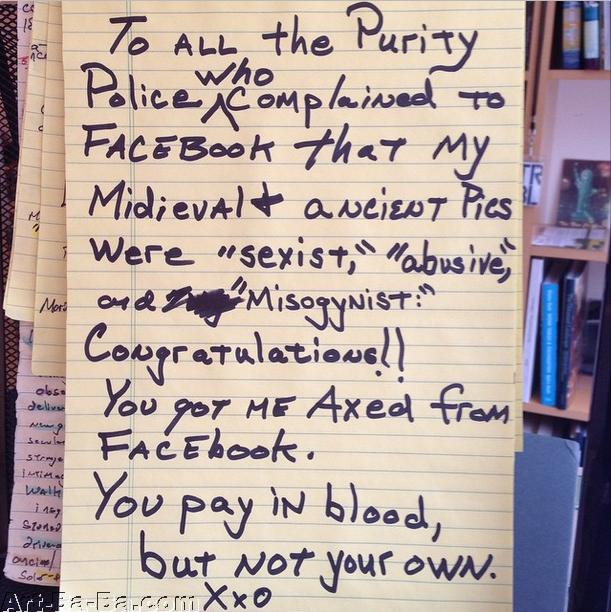 To ALL the Purity
Police who Complained to
FACEBOOK that MY
Midieval & ancient Pics
Were "sexist," "abusive",
and "Misogynist:"
Congratulations!!
You got ME Axed from
FACEbook.
You pay in blood,
but NOT your OWN.
XxO
Art-Ba-Ba.com